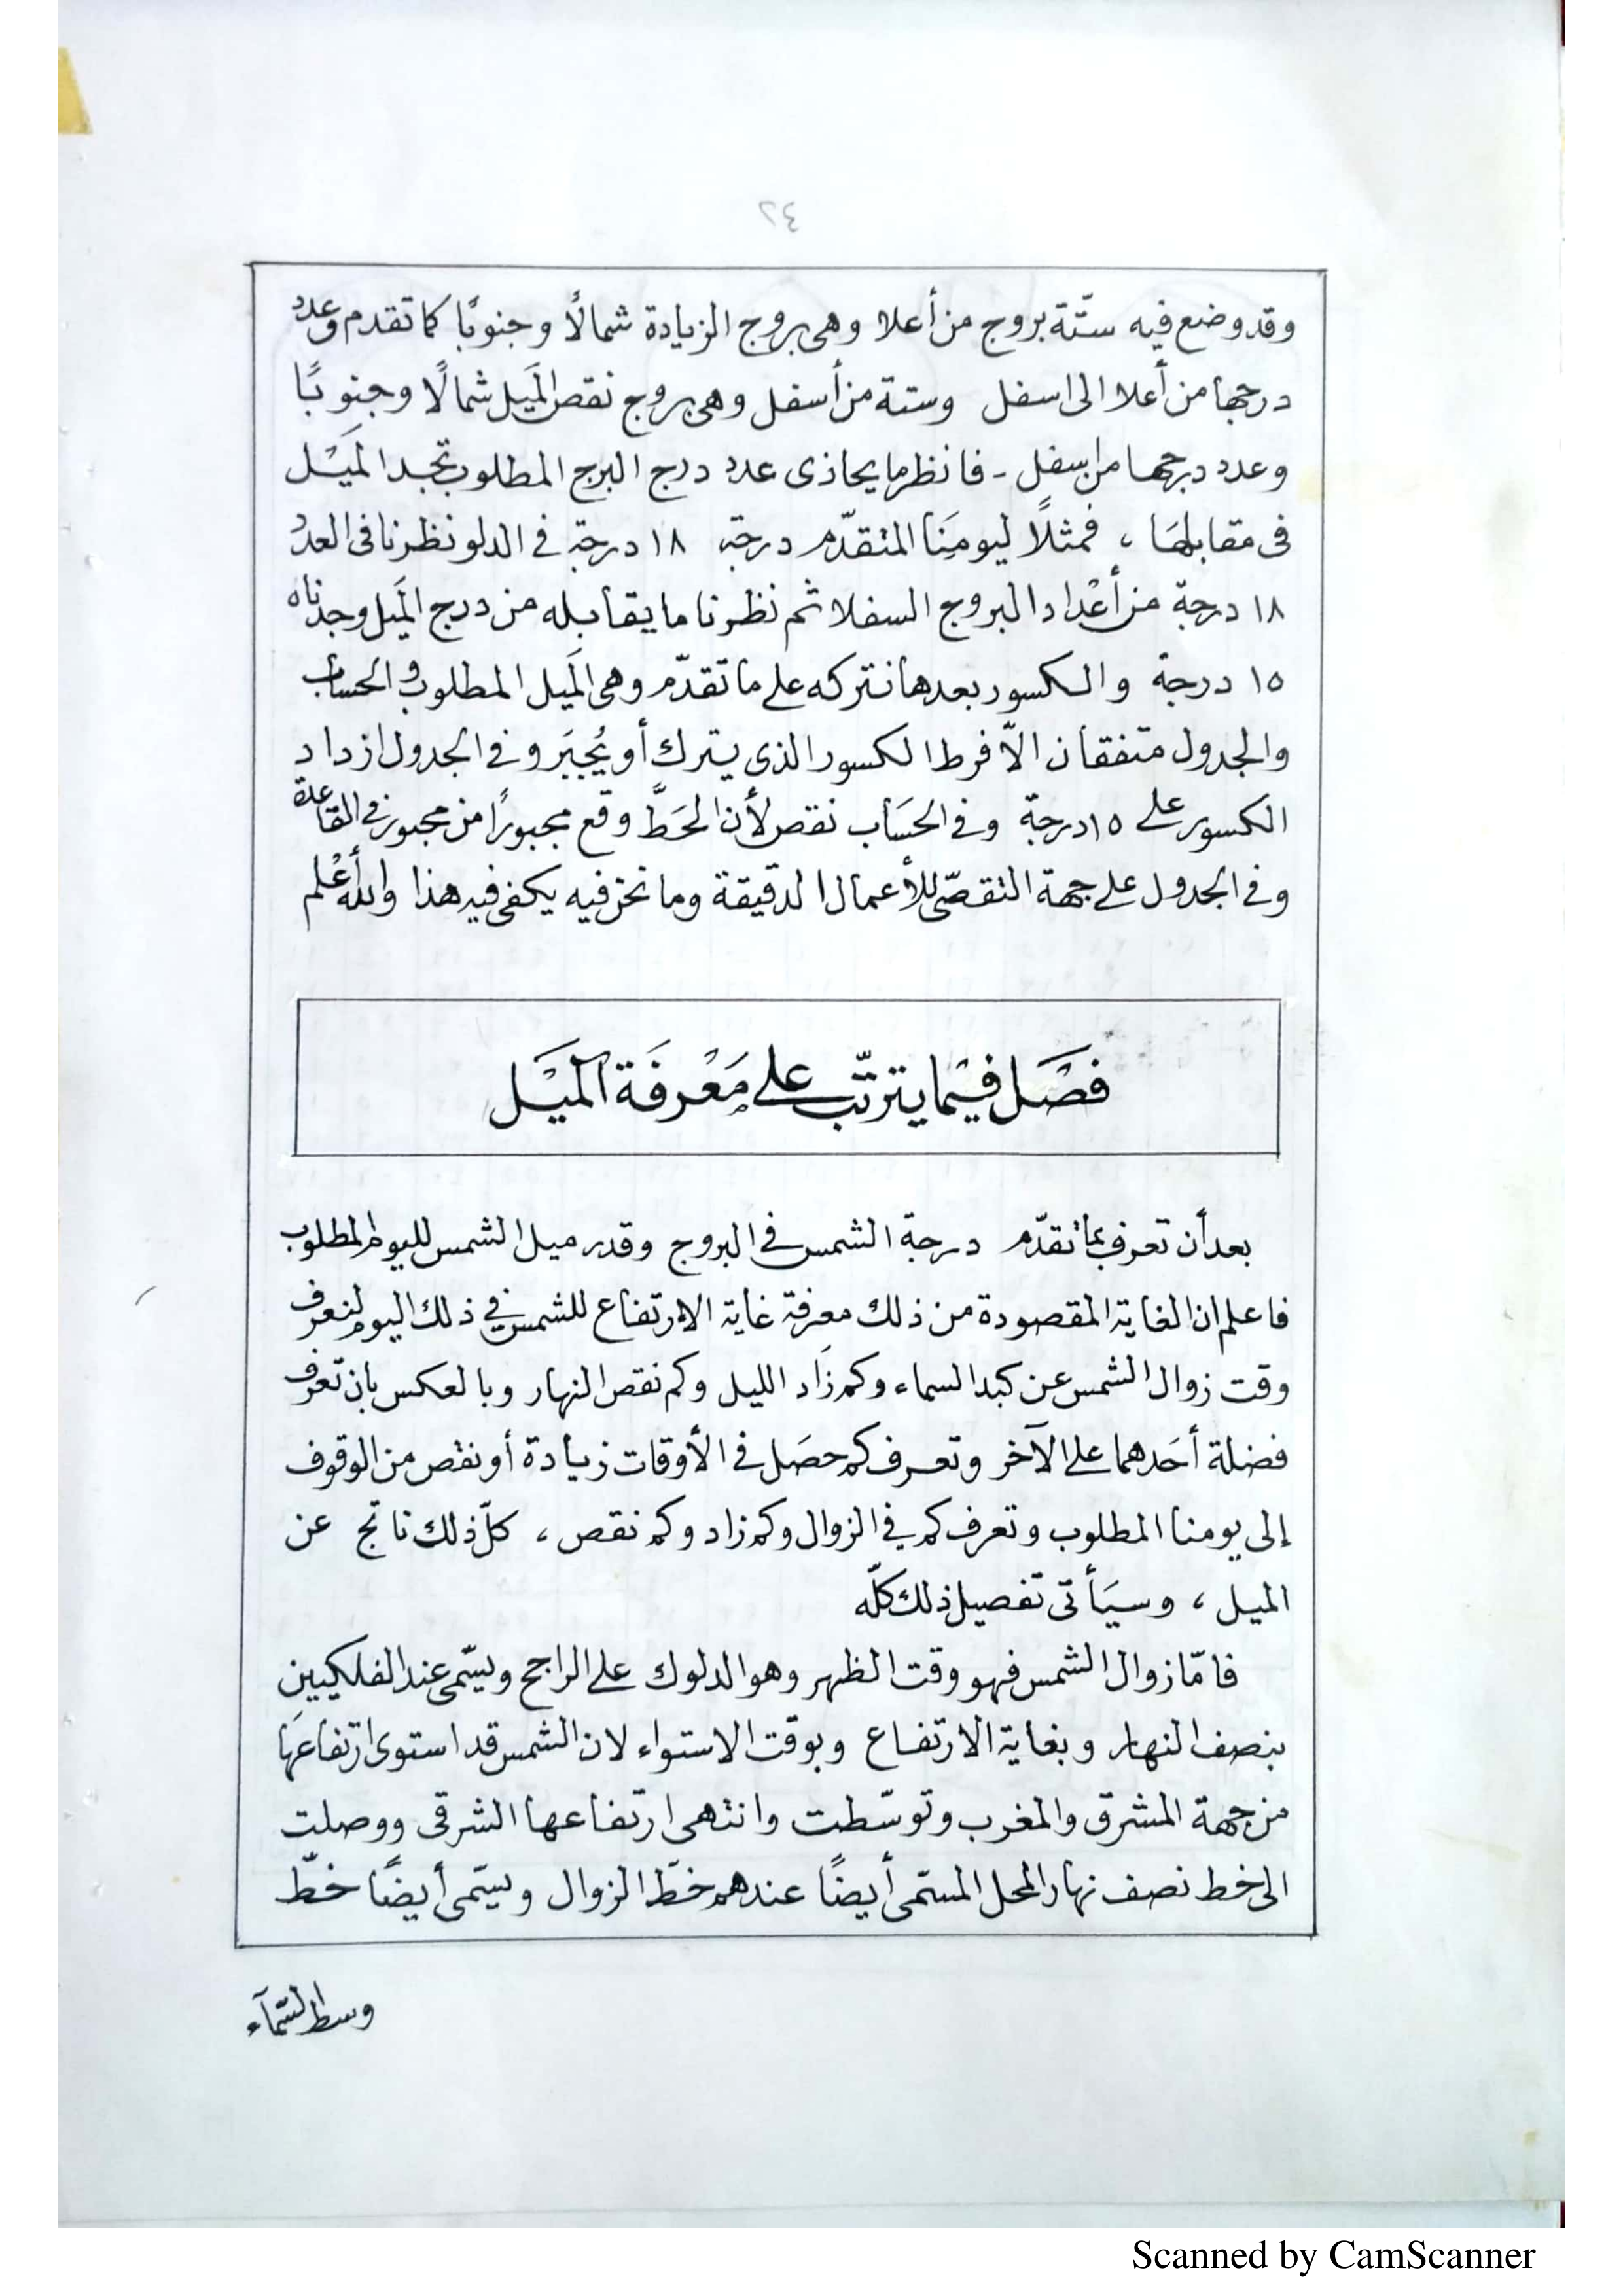 ٢٤
وقد وضع فيه ستّة بروج من أعلا وهى بروج الزيادة شمالًا وجنوبًا كما تقدم وعدد
درجها من أعلا الى اسفل وستة من أسفل وهى بروج نقص المَيل شمالًا وجنوبًا
وعدد درجها من اسفل - فانظر ما يحاذى عدد درج البرج المطلوب تجد المَيْل
فى مقابلهَا ، فمثلًا ليومِنَا المتقدّم درجة ١٨ درجة في الدلو نظرنا فى العدد
١٨ درجة من أعْداد البروج السفلا ثم نظرنا ما يقابله من درج المَيل وجدناه
١٥ درجة والكسور بعدها نتركه على ما تقدّم وهى المَيل المطلوب والحساب
والجدول متفقان الاّ فرط الكسور الذى يترك أو يُجبَر وفي الجدول ازداد
الكسور على ١٥ درجة وفي الحسَاب نقص لأن الحَطَّ وقع مجبورًا من مجبور في القاعدة
وفي الجدول على جهة التقصّى للأعمال الدقيقة وما نحن فيه يكفى فيه هذا والله أعْلم
فصْل فيْما يترتّب على مَعْرفَة المَيْل
بعد أن تعرف بما تقدّم درجة الشمس في البروج وقدر ميل الشمس لليوم المطلوب
فاعلم ان الغاية المقصودة من ذلك معرفة غاية الارتفاع للشمس في ذلك اليوم لنعرف
وقت زوال الشمس عن كبد السماء وكم زَاد الليل وكم نقص النهار وبالعكس بان تعرف
فضلة أحَدهما على الآخر وتعرف كم حصَل في الأوقات زيادة أو نقص من الوقوف
إلى يومنا المطلوب وتعرف كم في الزوال وكم زاد وكم نقص ، كلّ ذلك ناتج عن
الميل ، وسيَأتى تفصيل ذلك كلّه
فامّا زوال الشمس فهو وقت الظهر وهو الدلوك على الراجح ويسّمى عند الفلكيين
بنصف النهار وبغاية الارتفاع وبوقت الاستواء لان الشمس قد استوى ارتفاعهَا
من جهة المشرق والمغرب وتوسّطت وانتهى ارتفاعها الشرقى ووصلت
الى خط نصف نهار المحل المسّمى أيضًا عندهم خطّ الزوال ويسّمى أيضًا خطّ
وسط السّمآء
Scanned by CamScanner